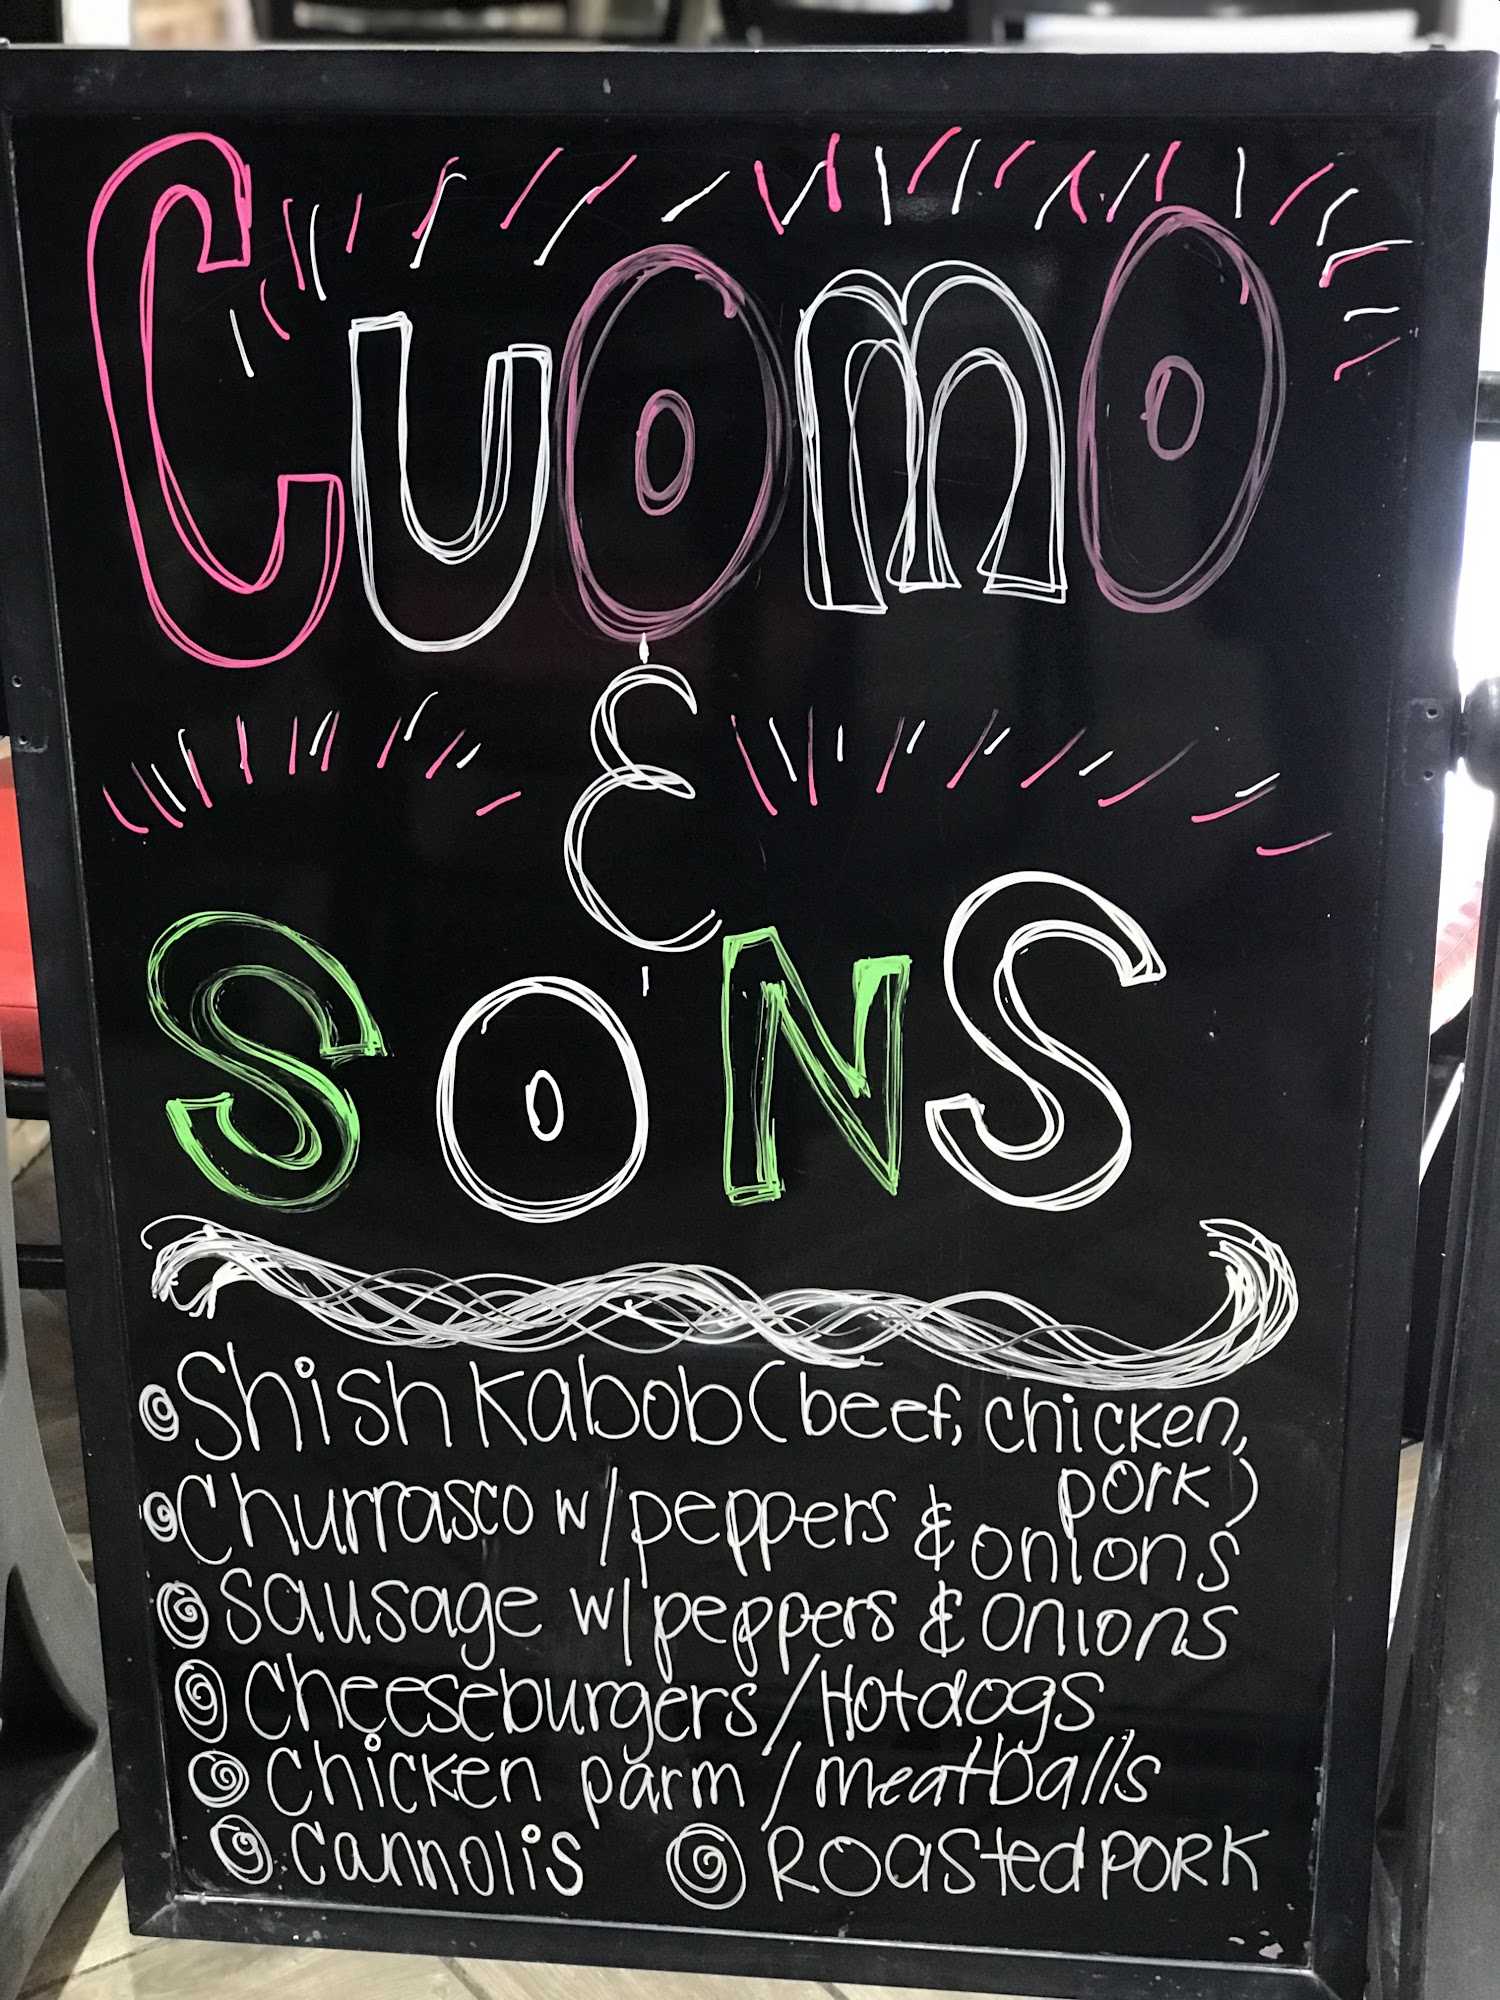 Cuomo
&
SONS
Shish Kabob (beef, chicken,
pork)
Churrasco w/ peppers & onions
Sausage w/ peppers & onions
Cheeseburgers / Hotdogs
Chicken parm / meatballs
Cannolis Roasted PORK